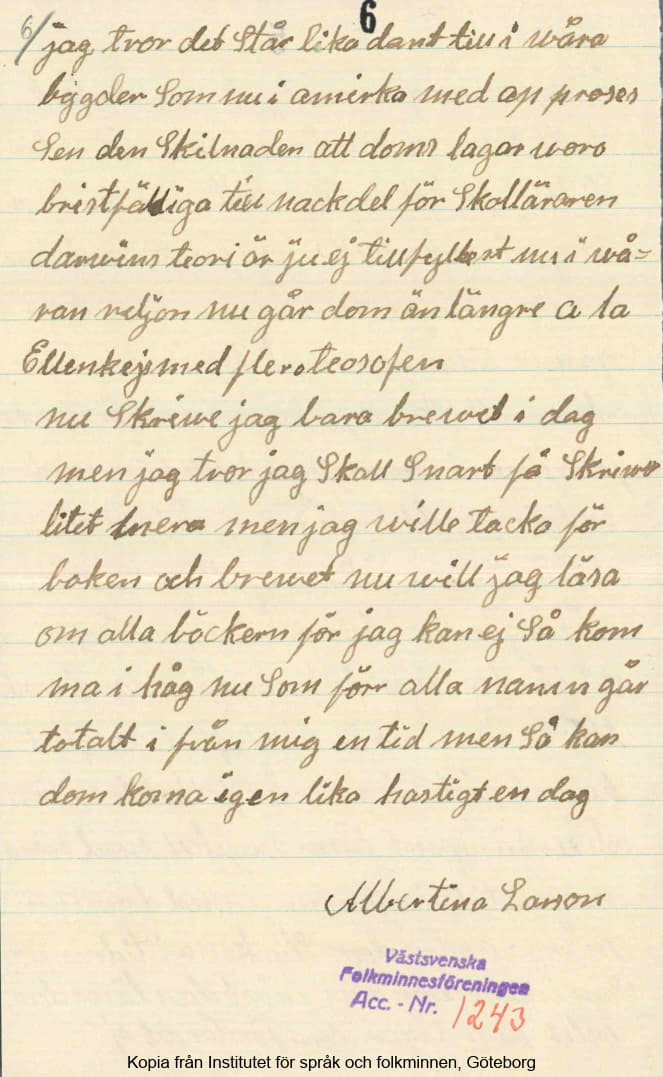 6/
6
jag tror det Står lika dant till i wåra
bygder Som nu i amirka med ap proses
Sen den Skilnaden att doms lagar woro
bristfälliga till nackdel för Skolläraren
darwins teori är ju ej tillfyllest nu i wå=
ran reljon nu går dom än längre a la
Ellenkejs med flera teosofen
nu Skriwe jag bara brewet i dag
men jag tror jag Skall Snart få Skriwa
litet mera men jag wille tacka för
boken och brewet nu will jag läsa
om alla böckern för jag kan ej Så kom
ma i håg nu Som förr alla namn går
totalt i från mig en tid men Så kan
dom koma igen lika hastigt en dag
Albertina Larson
Västsvenska
Folkminnesföreningen
Acc. - Nr. 1243
Kopia från Institutet för språk och folkminnen, Göteborg